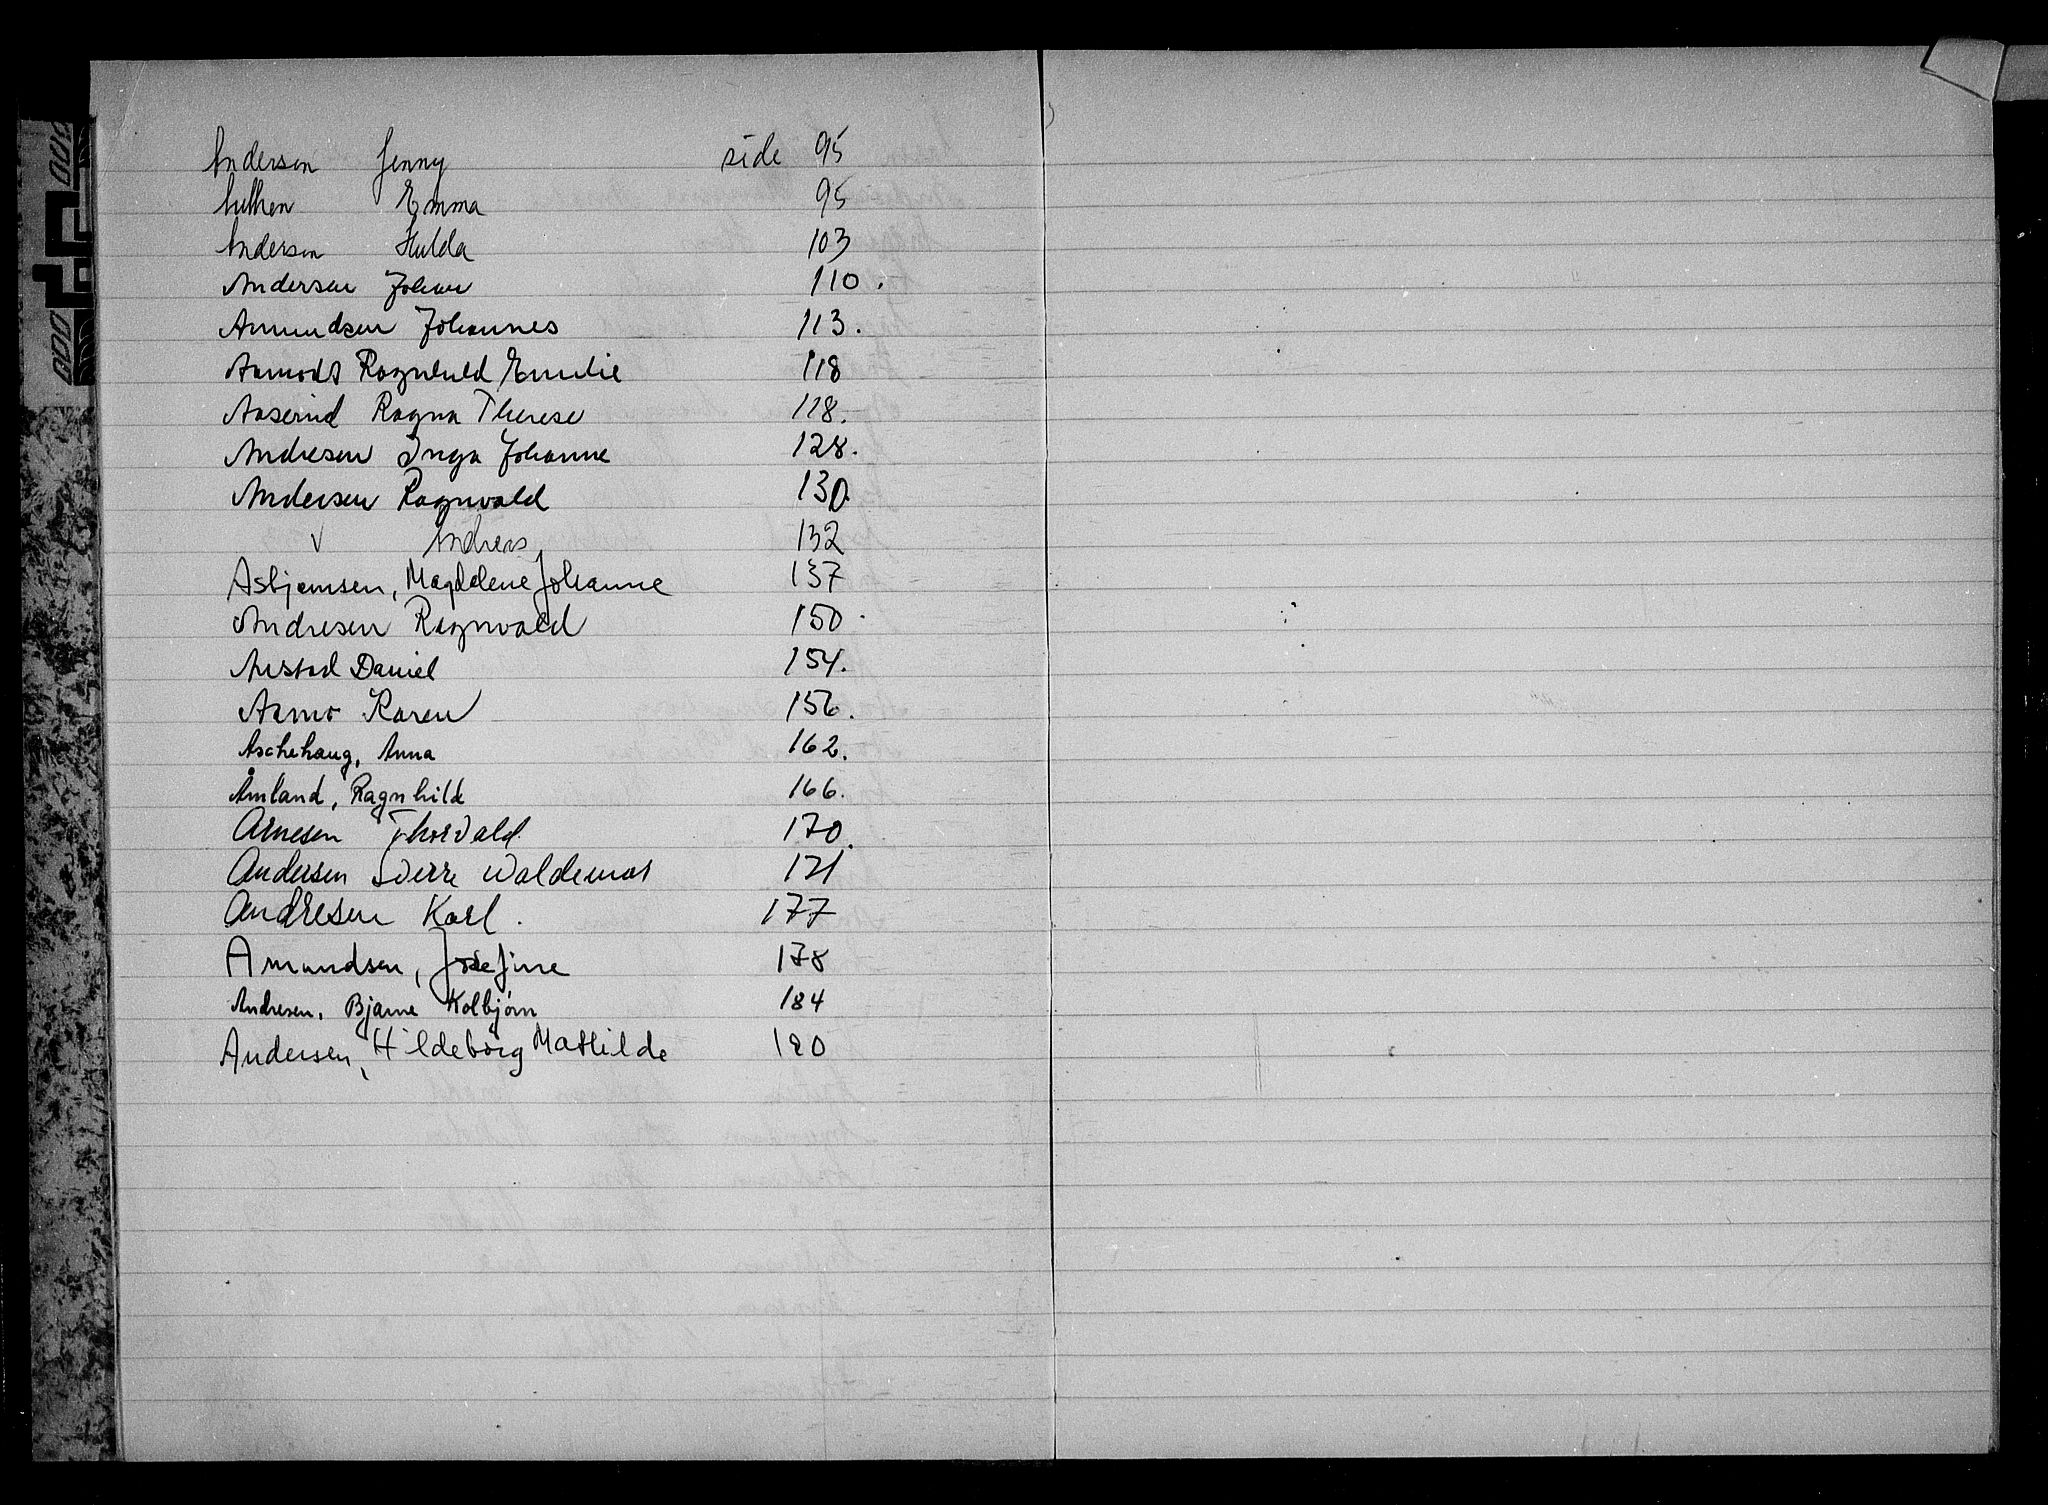 Anderson Jenny side 95
Authen Emma 95
Anderson Hulda 103
Andersen Johan 110.
Amundsen Johannes 113.
Aamodt Ragnhild Emilie 118
Aaserud Ragna Therese 118.
Andresen Inga Johanne 128.
Andersen Ragnvald 130.
√ Andreas 132
Asbjørnsen, Magdelene Johanne 137
Andresen Ragnvald 150.
Austad Daniel 154.
Aamo Karen 156.
Aschehaug, Anna 162.
Åmland, Ragnhild 166.
Arnesen Thorvald. 170.
Andersen Sverre Waldemar 171
Andresen Karl. 177
Amundsen, Josefine 178
Andresen, Bjarne Kolbjørn 184
Andersen, Hildeborg Mathilde 190